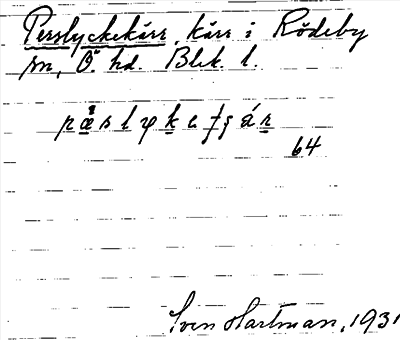 Perslyckekärr, kärr i Rödeby
sn, Ö. hd. Blek. l.
pæslykeʃʒár
64
Sven Hartman, 1931